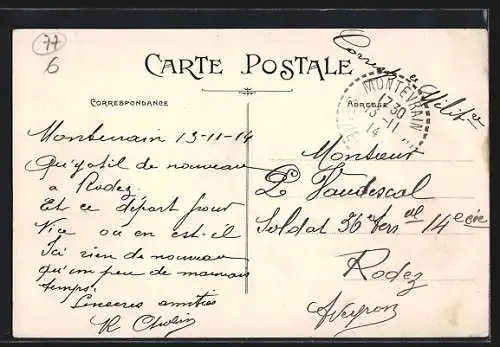 77
6
CARTE POSTALE
CORRESPONDANCE
ADRESSE
Corresp ce Milit re
MONTEVRAIN
17 30
13-11
14
Montevrain 13-11-14
Qu'y a t il de nouveau
a Rodez
Et ce départ pour
Nice ou en est-il
Ici rien de nouveau
qu'un peu de mauvais
temps.
Sincères amitiés
Monsieur
Vaudescal
Soldat 36 14e Cie
Rodez
Aveyron